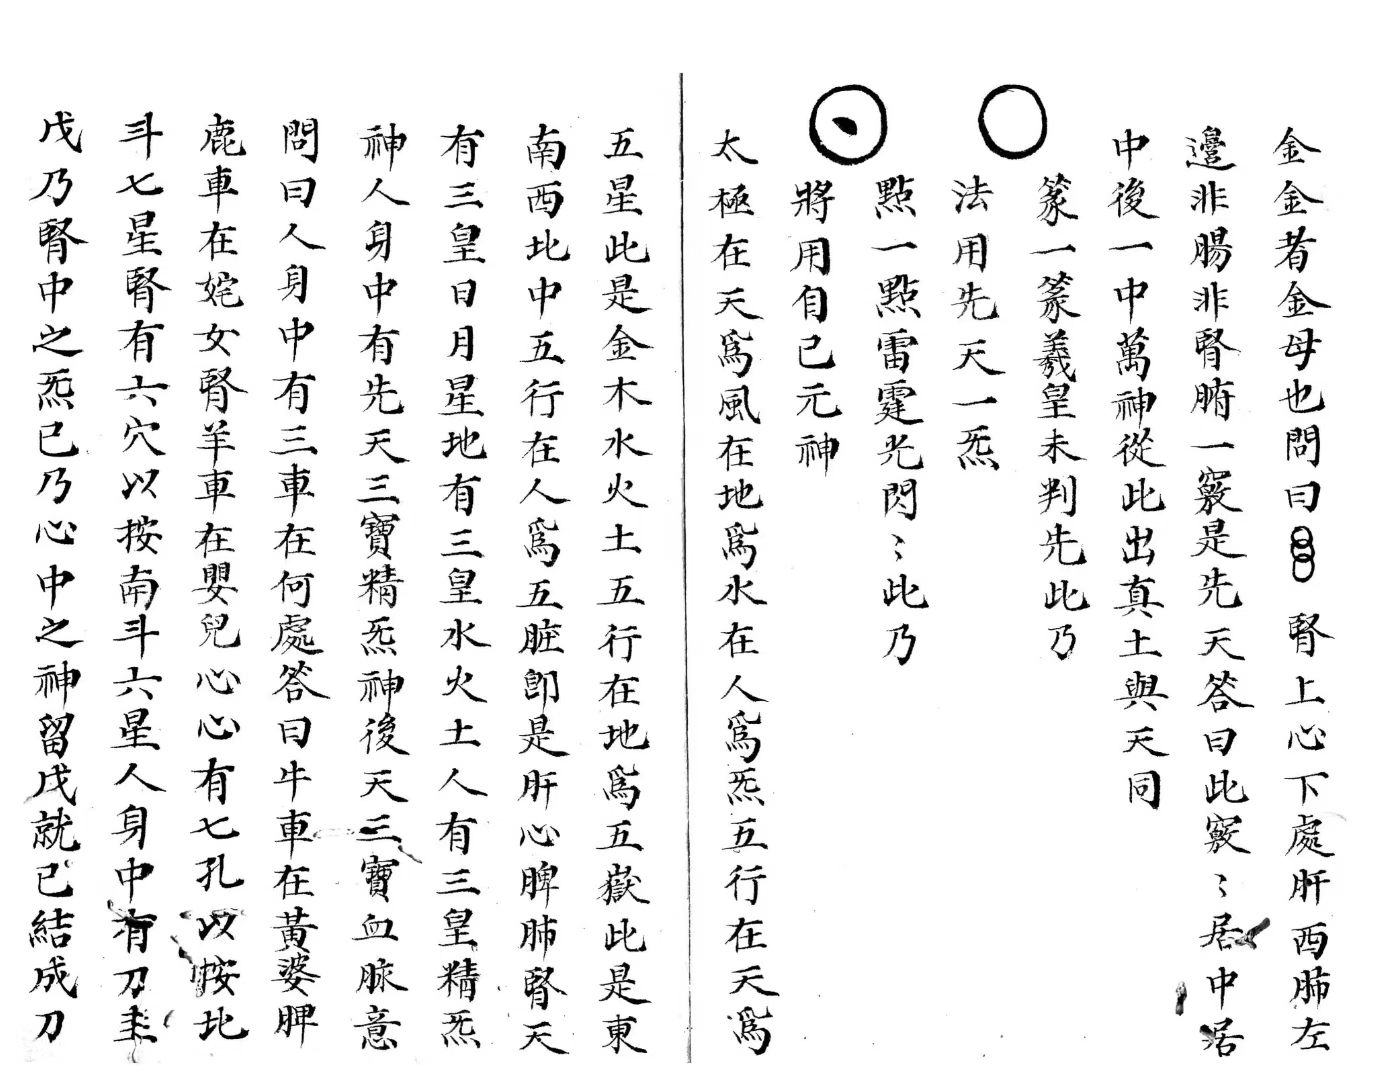 金金者金母也問曰腎上心下處肝西肺左
邊非腸非腎腑一竅是先天答曰此竅〻居中居
中後一中萬神從此出真土與天同
篆一篆羲皇未判先此乃
法用先天一炁
點一點雷霆光閃〻此乃
將用自己元神
太極在天爲風在地爲水在人爲炁五行在天爲
五星此是金木水火土五行在地爲五嶽此是東
南西北中五行在人爲五脏即是肝心脾肺腎天
有三皇日月星地有三皇水火土人有三皇精炁
神人身中有先天三寶精炁神後天三寶血脉意
問曰人身中有三車在何處答曰牛車在黃婆脾
鹿車在姹女腎羊車在嬰兒心心有七孔以按北
斗七星腎有六穴以按南斗六星人身中有刀圭
戊乃腎中之炁己乃心中之神留戊就己結成刀